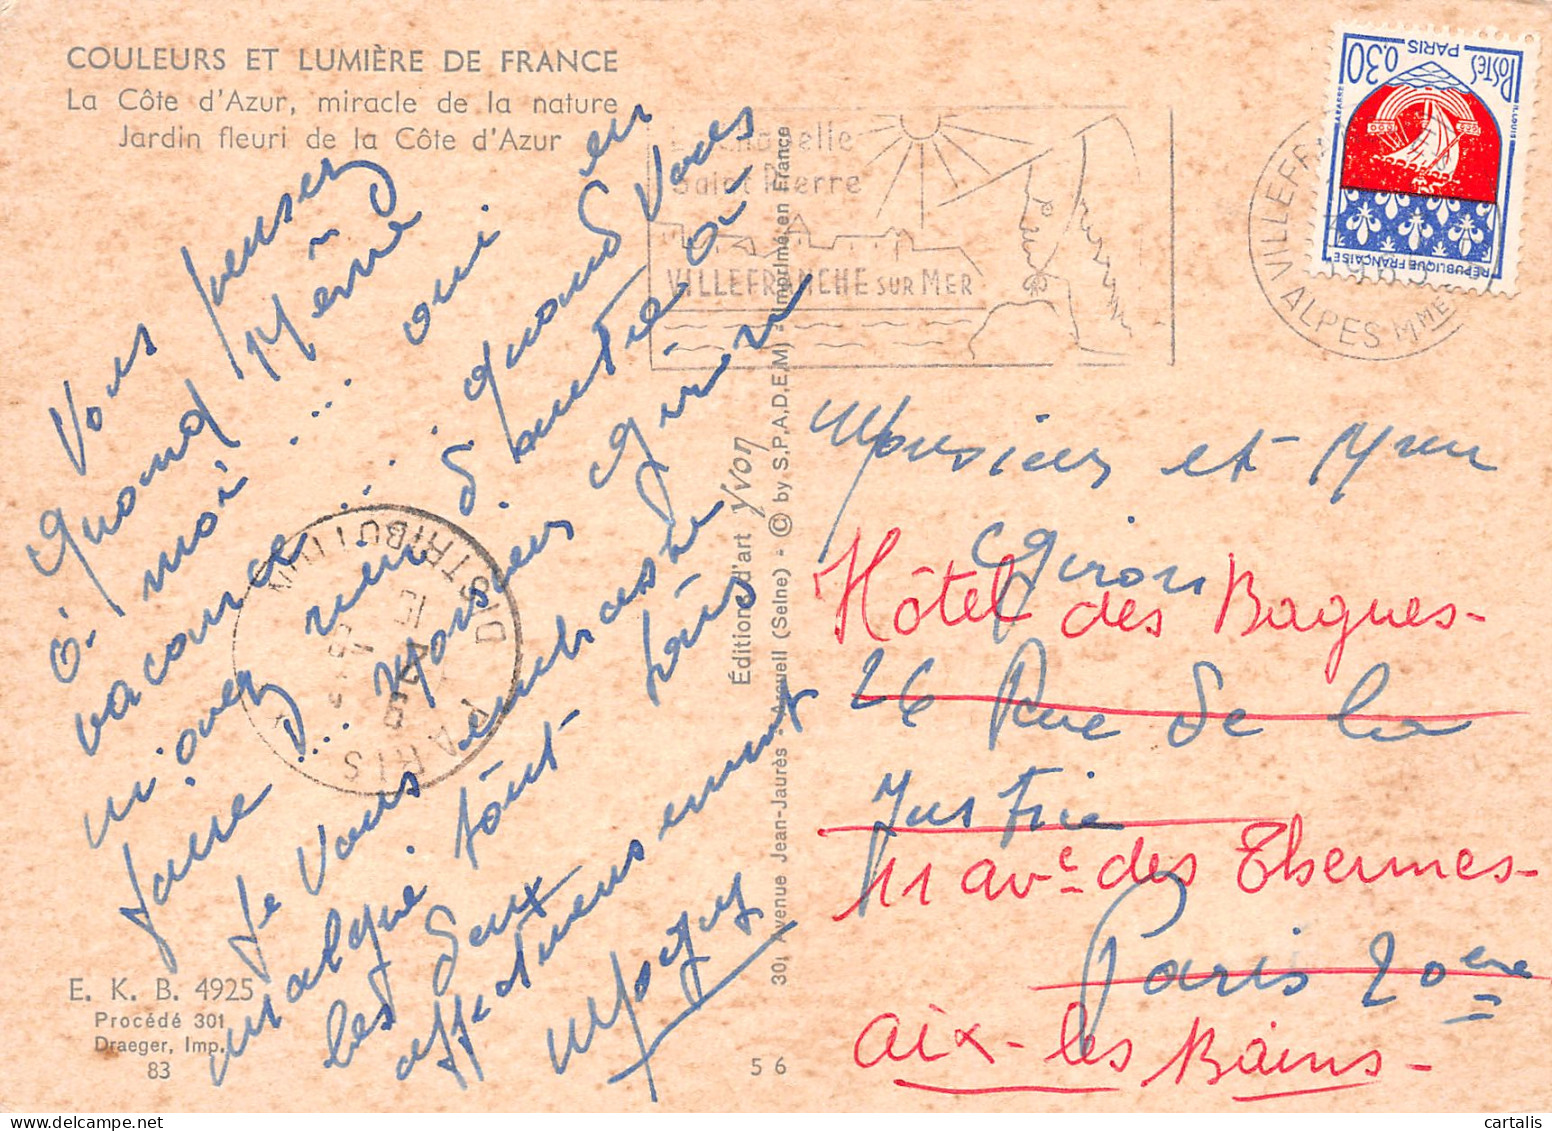 COULEURS ET LUMIÈRE DE FRANCE
La Côte d'Azur, miracle de la nature
Jardin fleuri de la Côte d'Azur
Vous pensez
quand Même
à moi ... oui en
vacances ... quand vous
n'avez rien d'autre à
faire ... Monsieur Giron
Je vous embrasse
malgré tout très
les deux
affectueusement
E. K. B. 4925
Procédé 301
Draeger, Imp.
83
Éditions d'art Yvon
30, Avenue Jean-Jaurès - Arcueil (Seine) - © by S.P.A.D.E.M) - Imprimé en France
56
La Chapelle
Saint Pierre
VILLEFRANCHE SUR MER
VILLEFRANCHE
ALPES MMES
POSTES
0,30
PARIS
RÉPUBLIQUE FRANÇAISE
PARIS
DISTRIBUTION
Monsieur et Mme
Giron
Hôtel des Bagues-
26 Rue de la
Justice
11 av. des Thermes-
Paris 20ème
Aix-les Bains-
cartalis